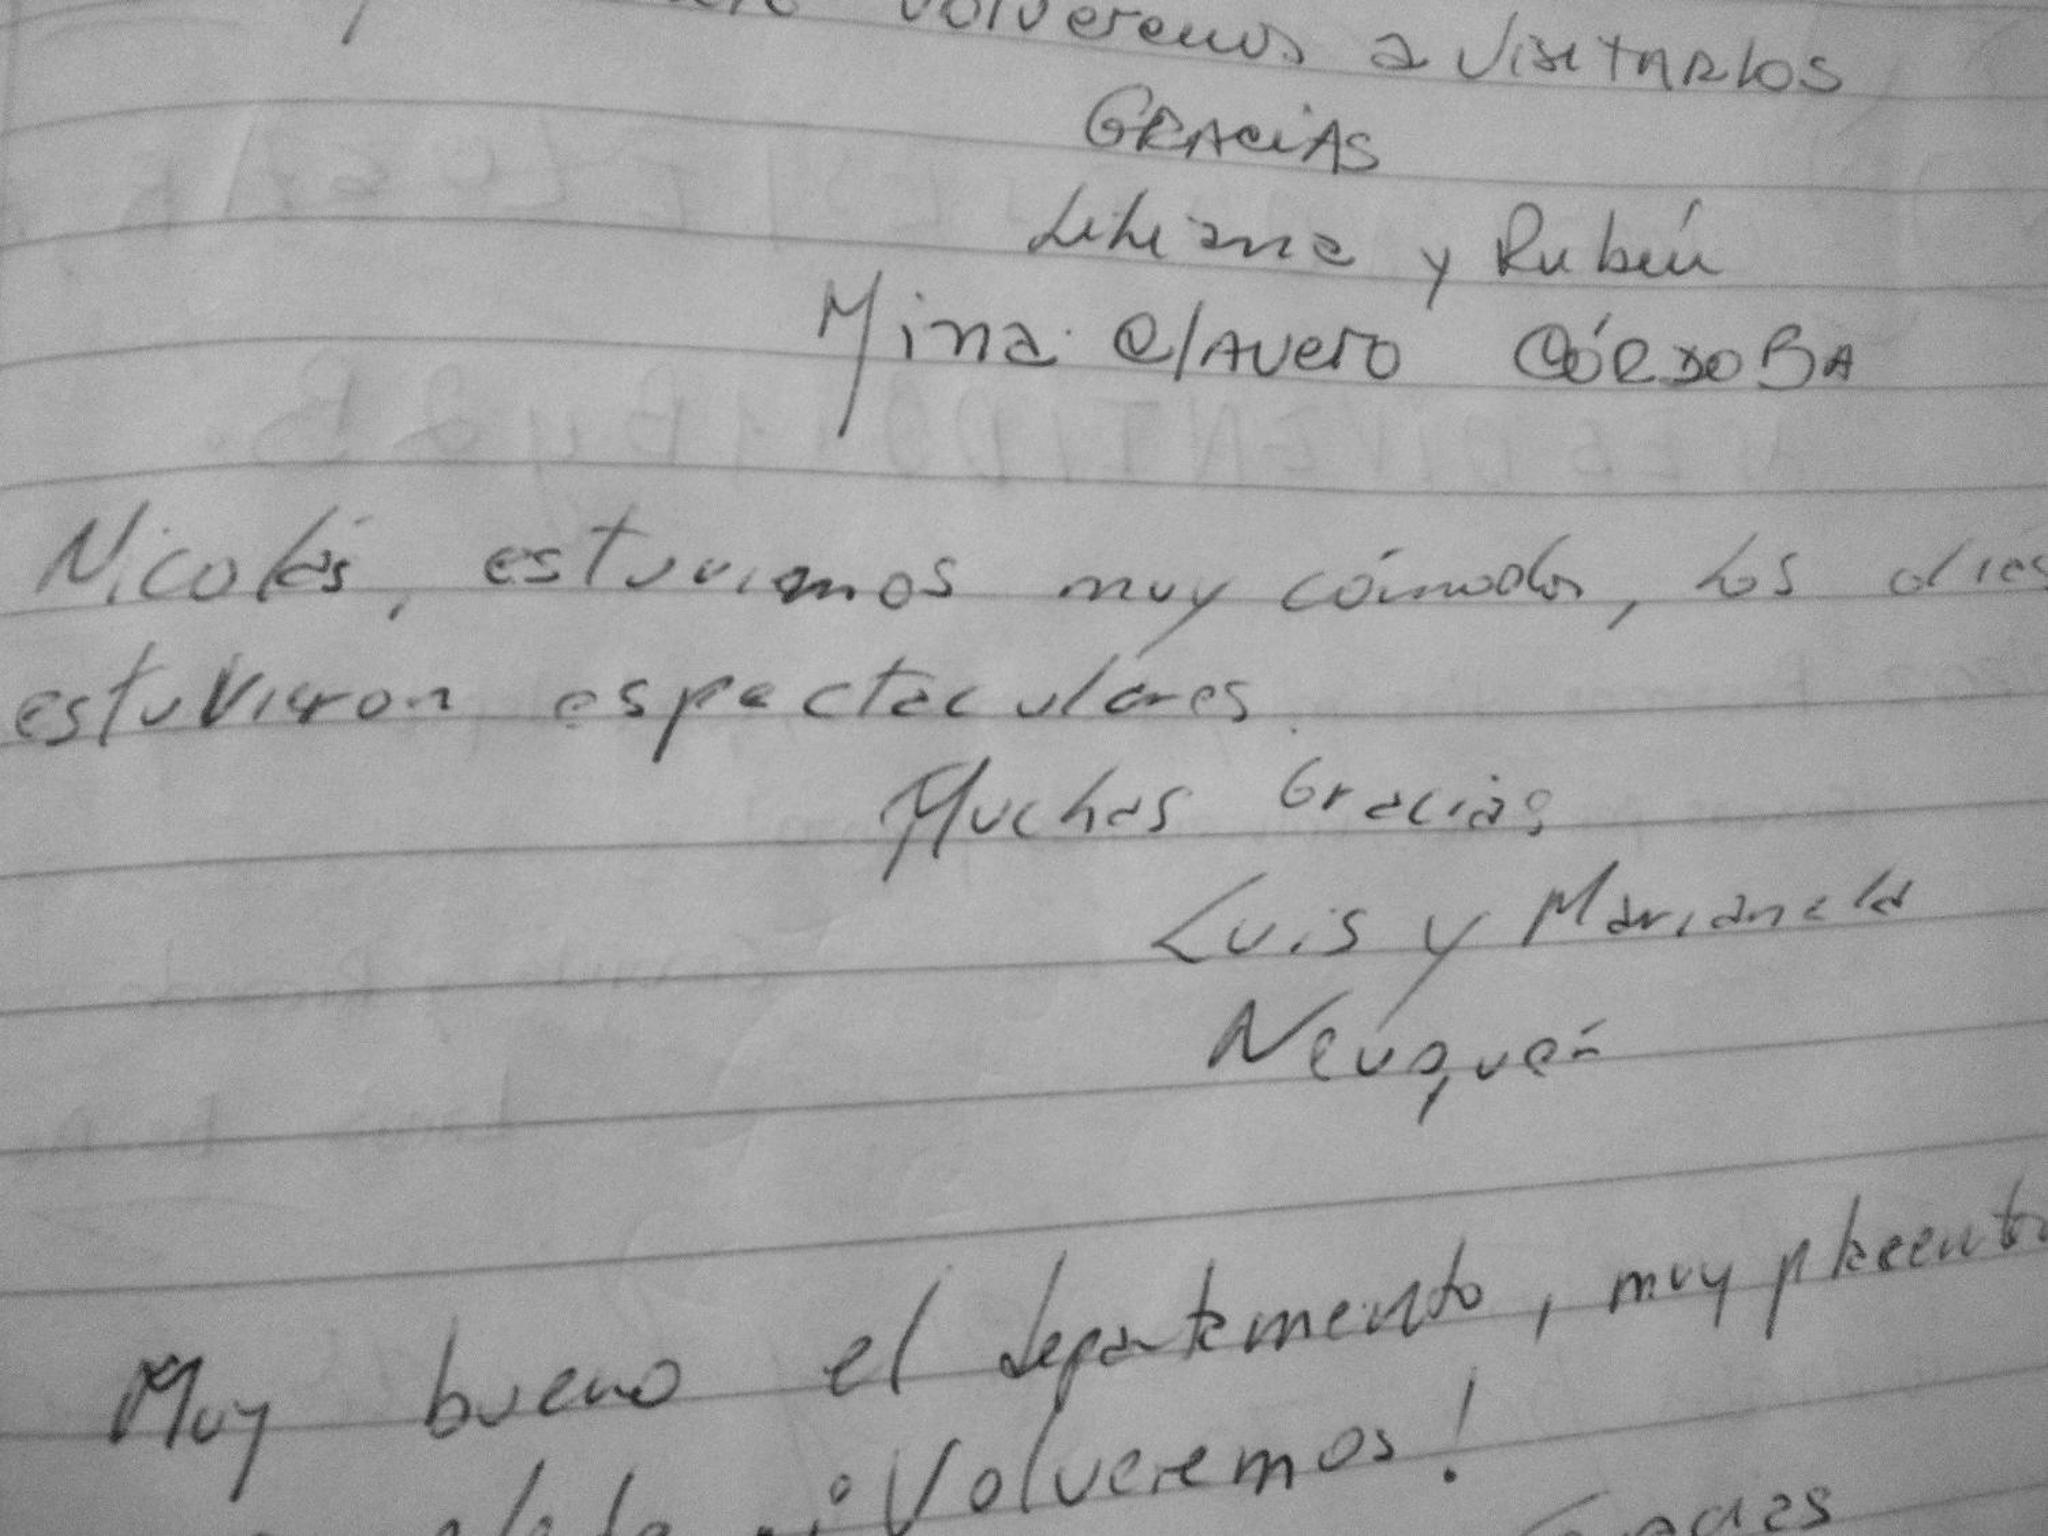 volveremos a visitarlos
GRACIAS
Liliana y Rubén
Mina Clavero CÓRDOBA
Nicolás, estuvimos muy cómodos, los dias
estuvieron espectaculares.
Muchas Gracias
Luis y Marianela
Neuquén
Muy bueno el departamento, muy placentera
¡Volveremos!
Gracias